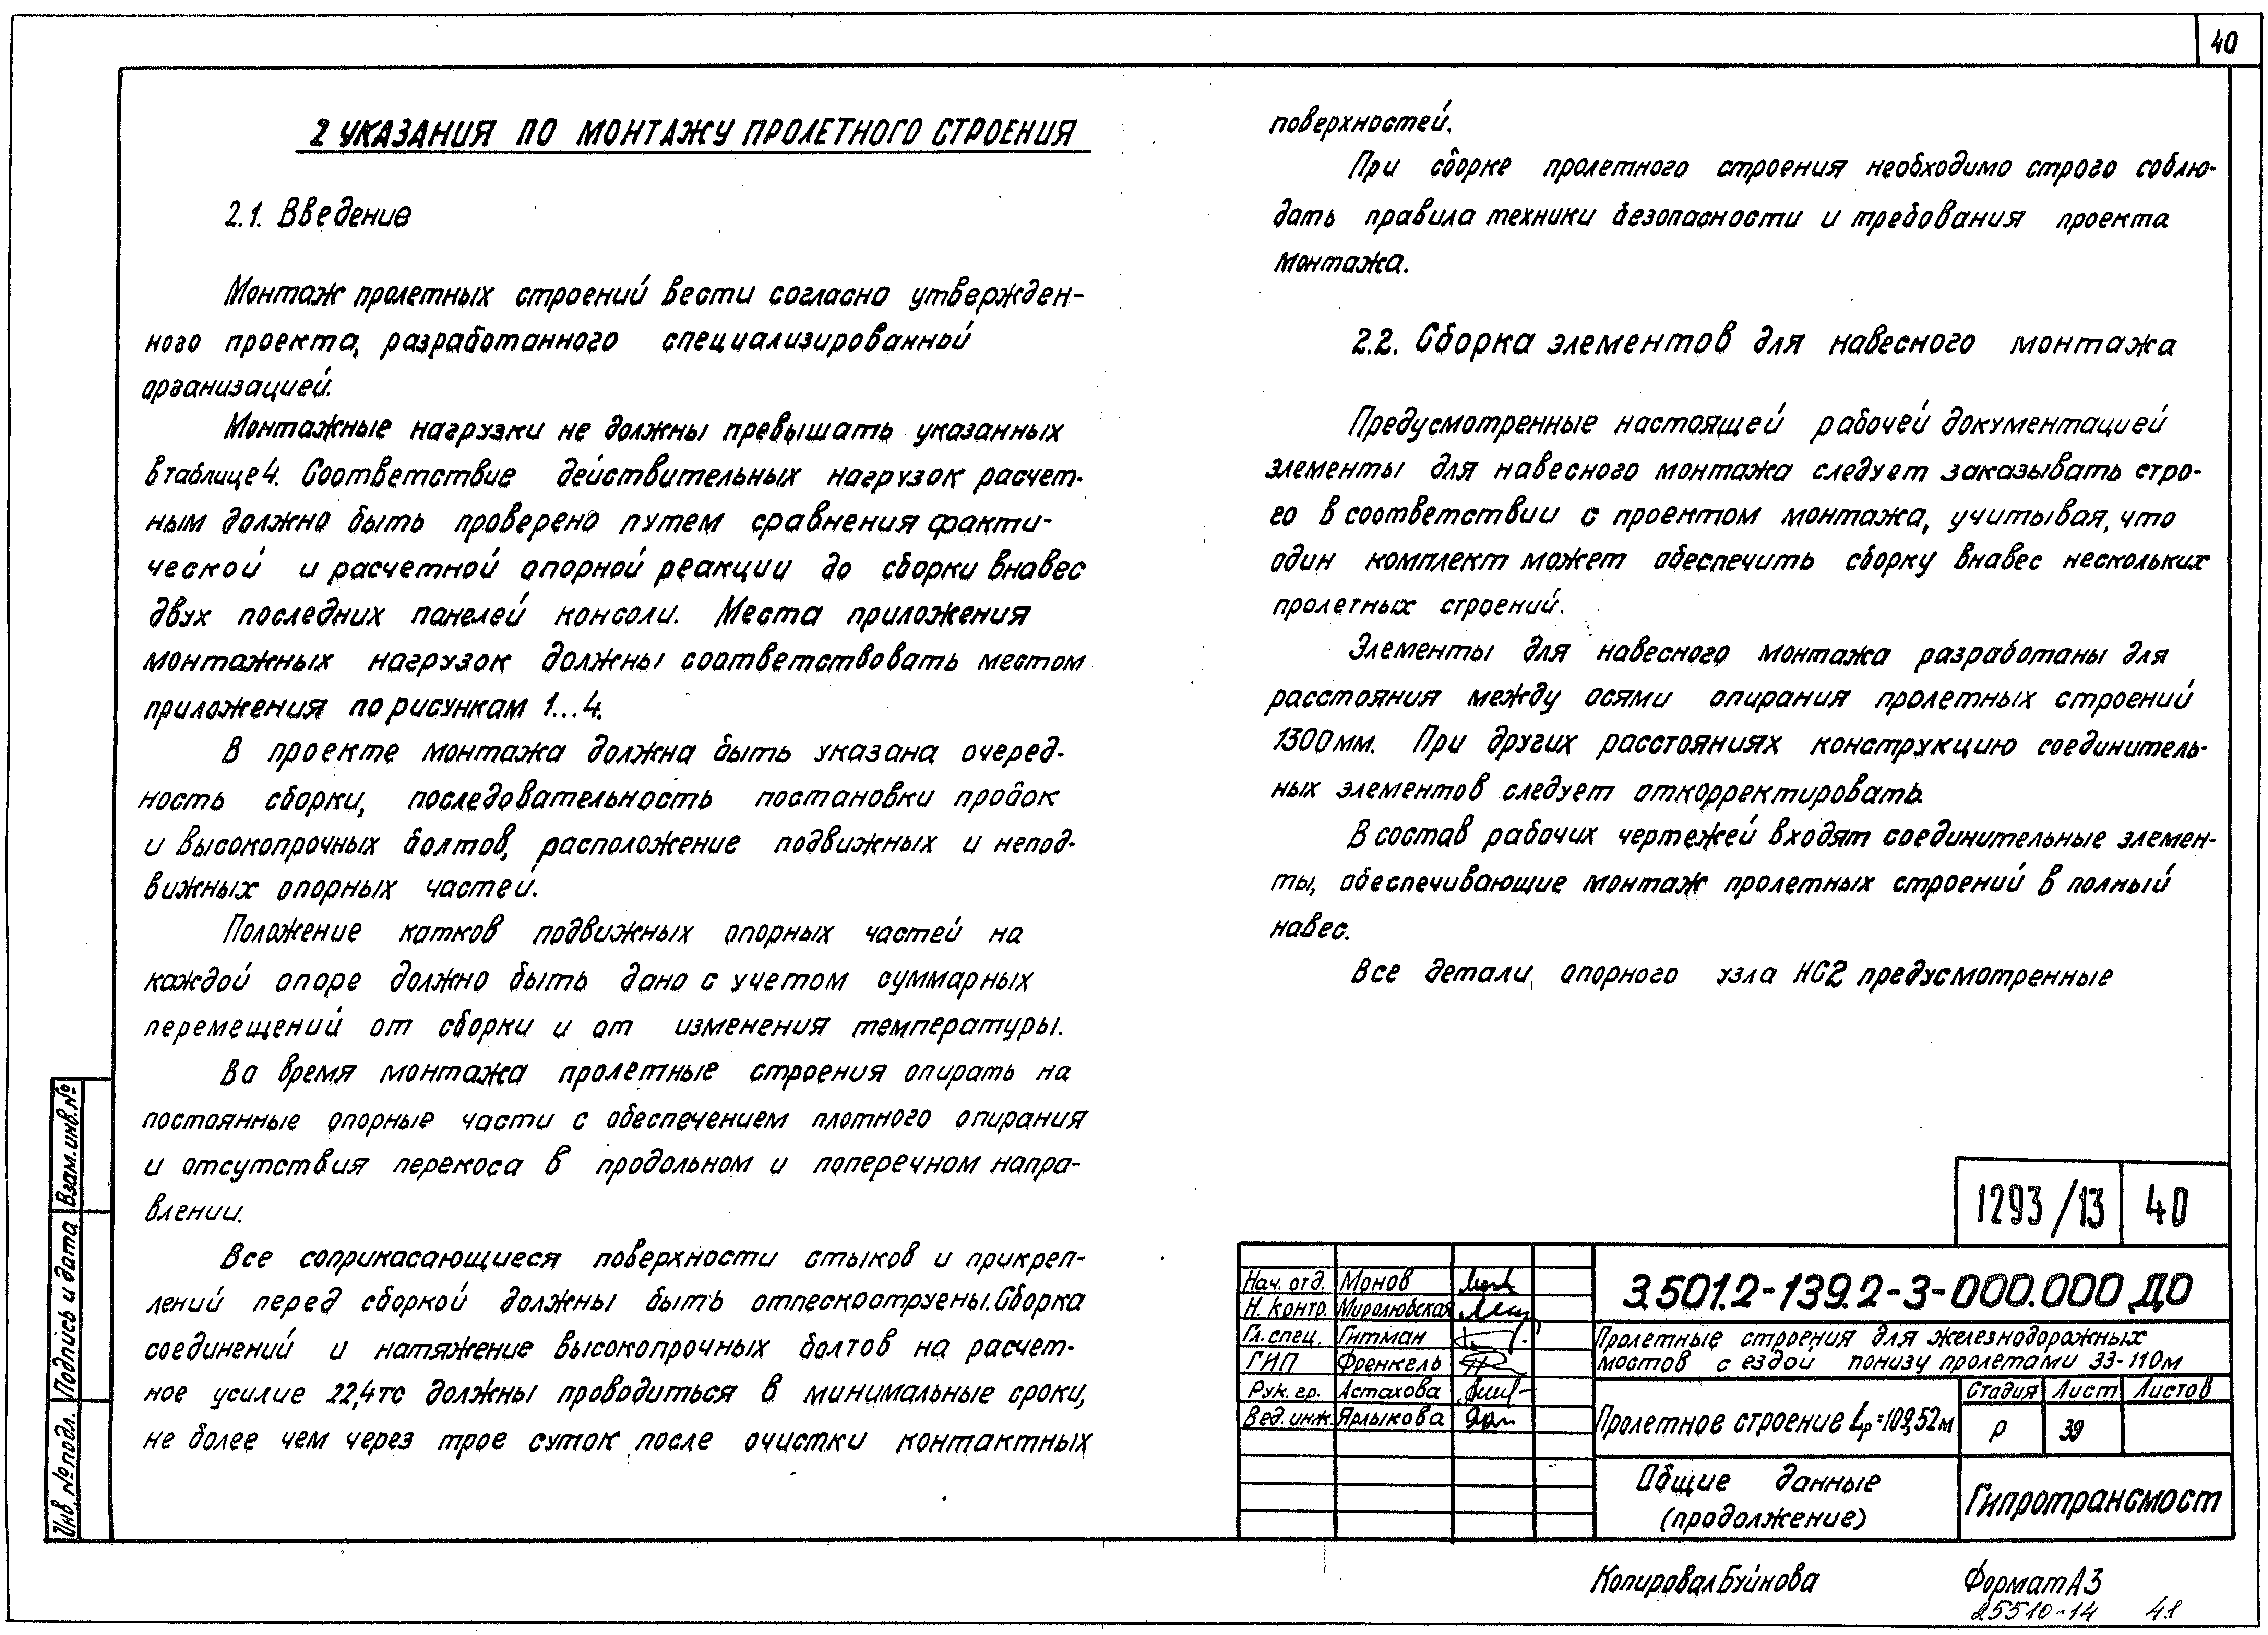 40
2 УКАЗАНИЯ ПО МОНТАЖУ ПРОЛЕТНОГО СТРОЕНИЯ
2.1. Введение
Монтаж пролетных строений вести согласно утвержден-
ного проекта, разработанного специализированной
организацией.
Монтажные нагрузки не должны превышать указанных
в таблице 4. Соответствие действительных нагрузок расчет-
ным должно быть проверено путем сравнения факти-
ческой и расчетной опорной реакции до сборки внавес
двух последних панелей консоли. Места приложения
монтажных нагрузок должны соответствовать местом
приложения по рисункам 1...4.
В проекте монтажа должна быть указана очеред-
ность сборки, последовательность постановки пробок
и высокопрочных болтов, расположение подвижных и непод-
вижных опорных частей.
Положение катков подвижных опорных частей на
каждой опоре должно быть дано с учетом суммарных
перемещений от сборки и от изменения температуры.
Во время монтажа пролетные строения опирать на
постоянные опорные части с обеспечением плотного опирания
и отсутствия перекоса в продольном и поперечном напра-
влении.
Все соприкасающиеся поверхности стыков и прикреп-
лений перед сборкой должны быть отпескоструены. Сборка
соединений и натяжение высокопрочных болтов на расчет-
ное усилие 22,4тс должны проводиться в минимальные сроки,
не более чем через трое суток после очистки контактных
поверхностей.
При сборке пролетного строения необходимо строго соблю-
дать правила техники безопасности и требования проекта
монтажа.
2.2. Сборка элементов для навесного монтажа
Предусмотренные настоящей рабочей документацией
элементы для навесного монтажа следует заказывать стро-
го в соответствии с проектом монтажа, учитывая, что
один комплект может обеспечить сборку внавес нескольких
пролетных строений.
Элементы для навесного монтажа разработаны для
расстояния между осями опирания пролетных строений
1300мм. При других расстояниях конструкцию соединитель-
ных элементов следует откорректировать.
В состав рабочих чертежей входят соединительные элемен-
ты, обеспечивающие монтаж пролетных строений в полный
навес.
Все детали опорного узла НС2 предусмотренные
1293/13 40
Нач. отд. Монов
Н. контр. Миролюбская
Гл. спец. Гитман
ГИП Френкель
Рук. гр. Астахова
Вед. инж. Ярлыкова
3.501.2-139.2-3-000.000 ДО
Пролетные строения для железнодорожных
мостов с ездой понизу пролетами 33-110м
Пролетное строение Lр=109,52м
Стадия Лист Листов
Р 39
Общие данные
(продолжение)
Гипротрансмост
Инв. № подл. Подпись и дата Взам. инв. №
Копировал Буйнова Формат А3
25510-14 41